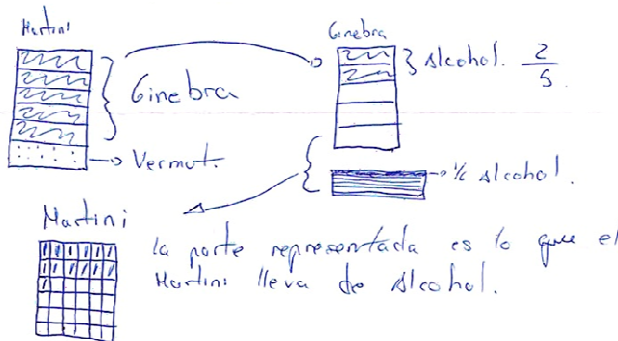 Martini
Ginebra
Alcohol. 2/5
Ginebra
Vermut.
1/6 alcohol.
Martini
la parte representada es lo que el
Martini lleva de Alcohol.